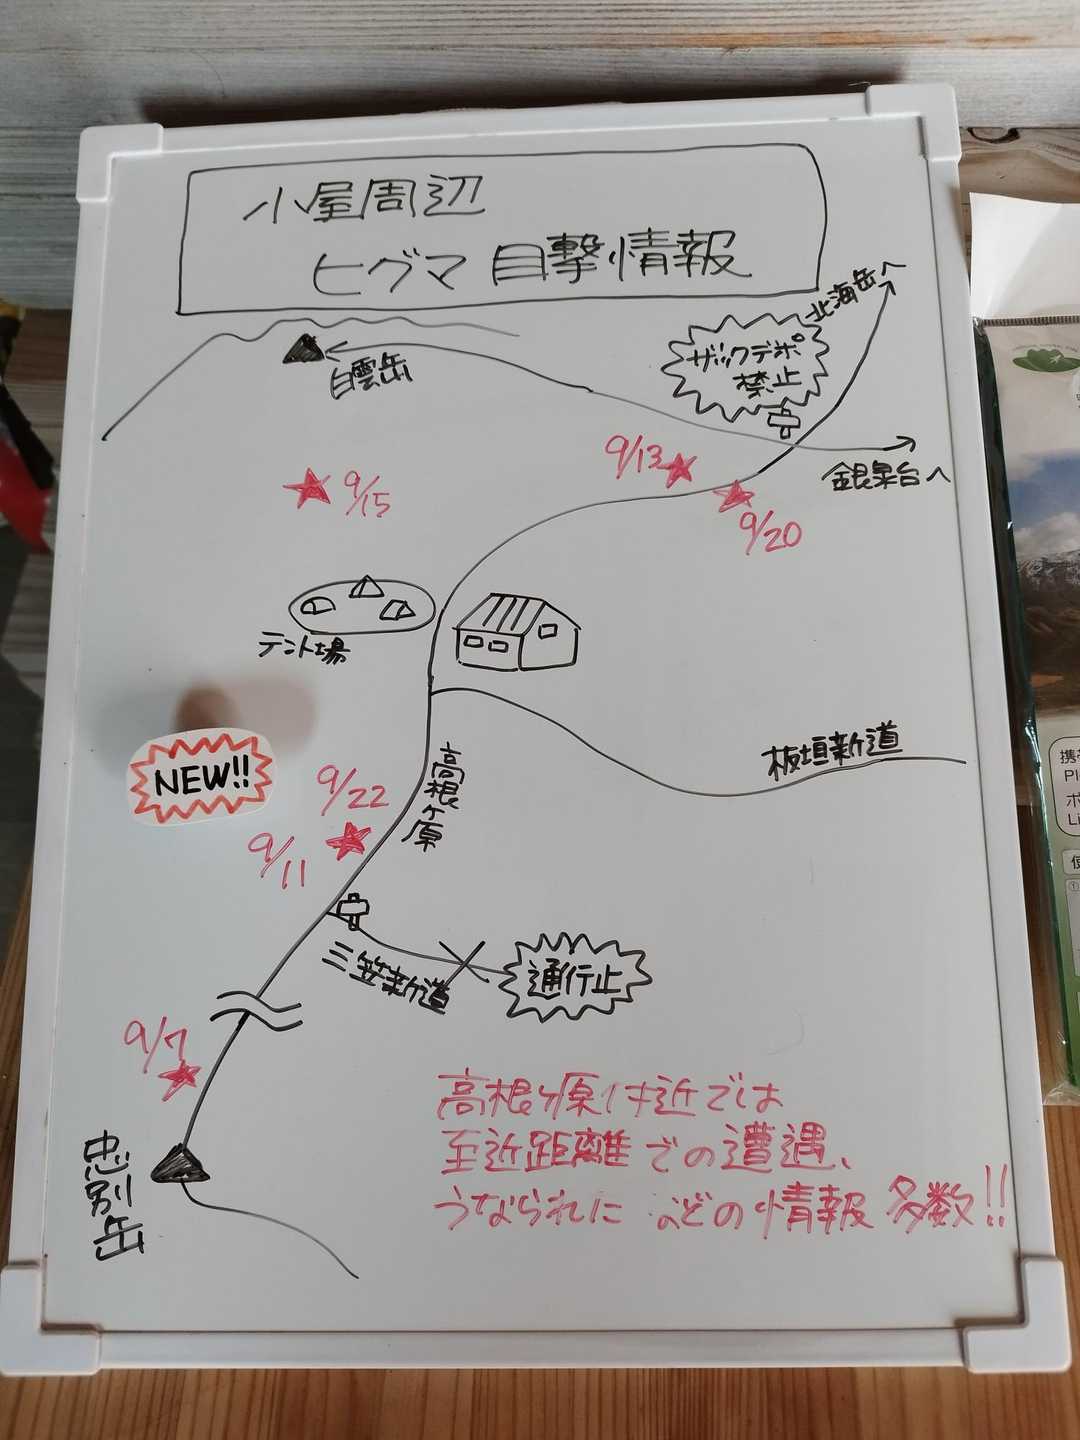 小屋周辺
ヒグマ 目撃情報
北海岳へ
ザックデポ
禁止
白雲岳
9/13
銀泉台へ
9/15
9/20
テント場
板垣新道
高根ヶ原
NEW!!
9/22
9/11
三笠新道
通行止
9/7
高根ヶ原付近では
至近距離での遭遇、
うなられた などの情報 多数!!
忠別岳
携
Pl
Li
使
①